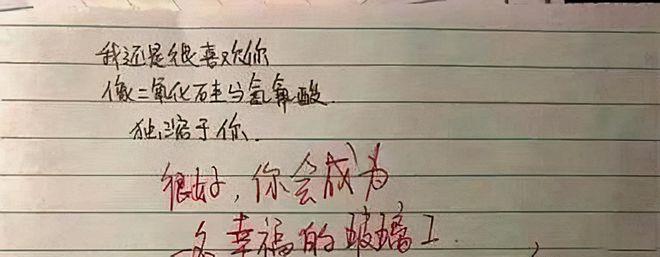 我还是很喜欢你
像二氧化硅与氢氟酸
独溶于你.
很好,你会成为
一名幸福的玻璃工.